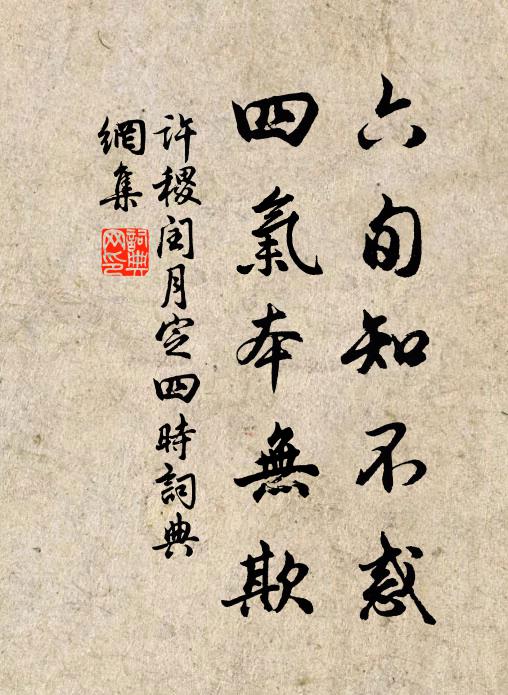 六旬知不惑
四氣本無欺
許稷閏月定四時詞典
網集
詞典
网印